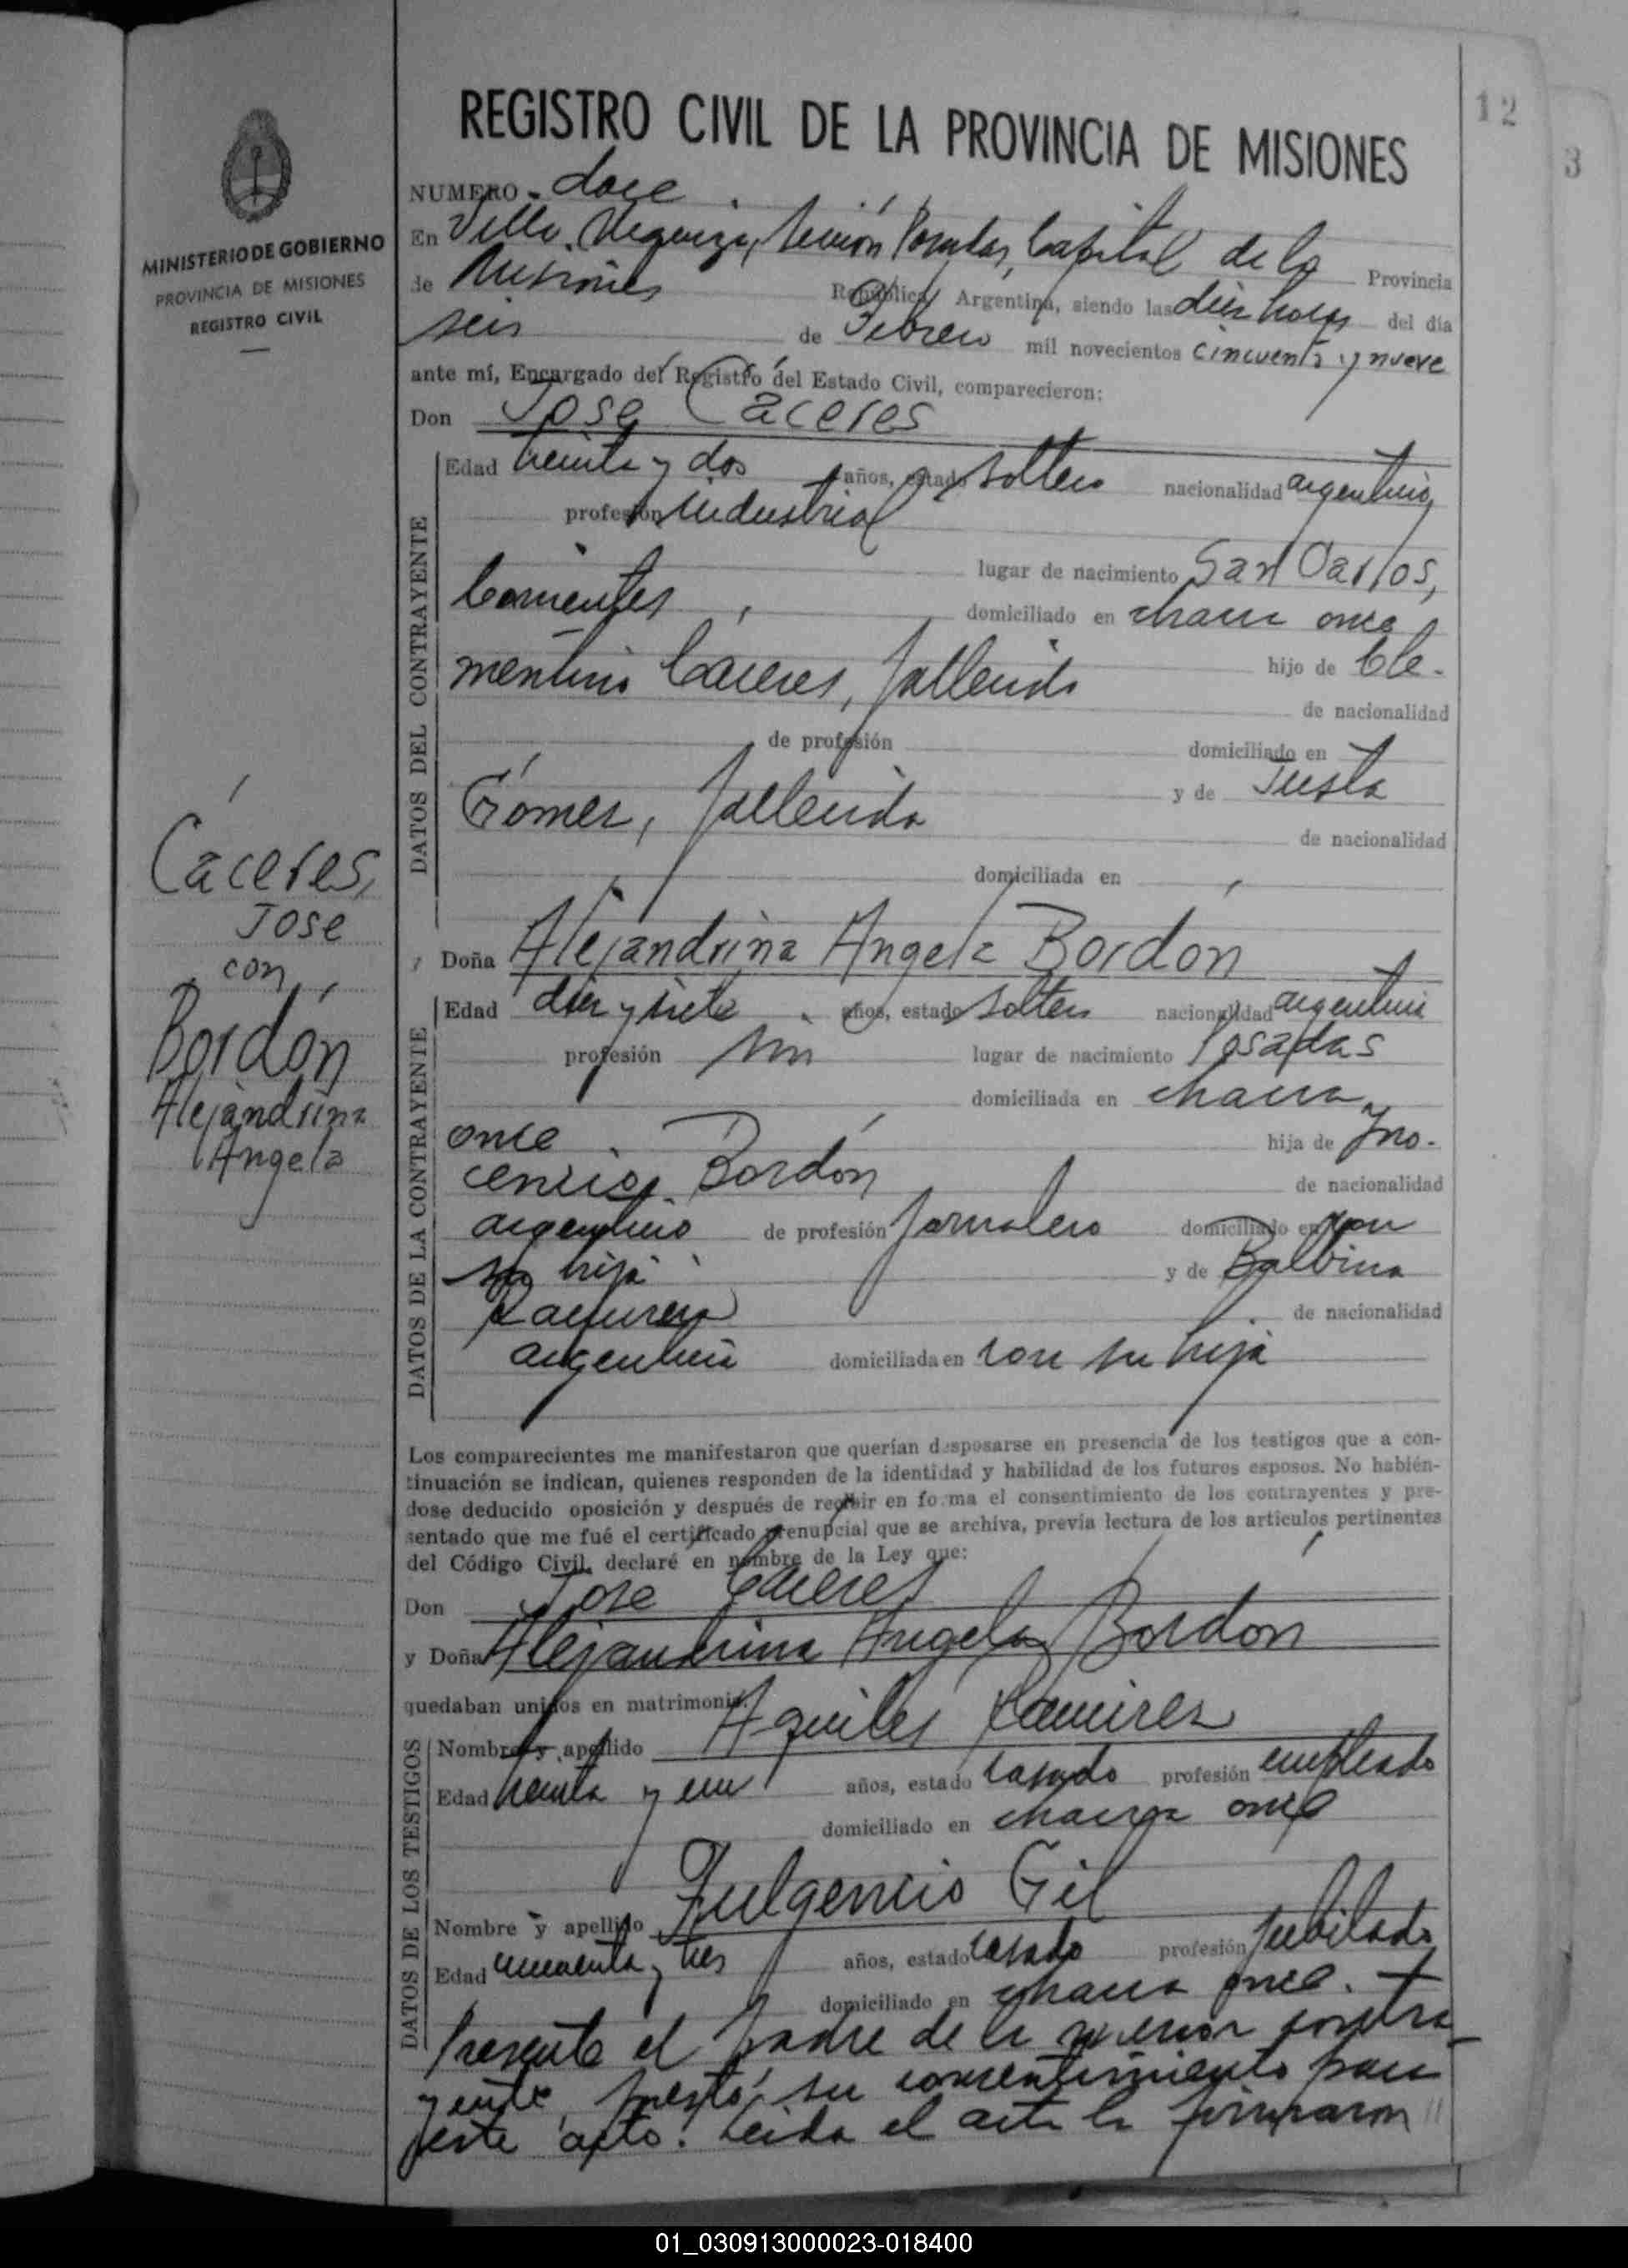 12
3
REGISTRO CIVIL DE LA PROVINCIA DE MISIONES
MINISTERIO DE GOBIERNO
PROVINCIA DE MISIONES
REGISTRO CIVIL
NUMERO - doce
En Villa Urquiza, Sección Posadas, Capital de la Provincia
de Misiones República Argentina, siendo las diez horas del día
seis de Febrero mil novecientos cincuenta y nueve
ante mí, Encargado del Registro del Estado Civil, comparecieron:
Don José Cáceres
DATOS DEL CONTRAYENTE
Edad treinta y dos años, estado soltero nacionalidad argentino,
profesión industrial
lugar de nacimiento San Carlos,
Corrientes, domiciliado en chacra once
hijo de Cle-
mentino Cáceres, fallecido
de nacionalidad
de profesión domiciliado en
y de Justa
Gómez, fallecida
de nacionalidad
domiciliada en
Cáceres,
José
con
Bordón
Alejandrina
Angela
y Doña Alejandrina Angela Bordón
DATOS DE LA CONTRAYENTE
Edad diez y siete años, estado soltera nacionalidad argentina
profesión sin lugar de nacimiento Posadas
domiciliada en chacra
once hija de Ino-
cencio Bordón
de nacionalidad
argentino de profesión jornalero domiciliado en con
su hija y de Balbina
Ramirez
de nacionalidad
argentina domiciliada en con su hija
Los comparecientes me manifestaron que querían desposarse en presencia de los testigos que a con-
tinuación se indican, quienes responden de la identidad y habilidad de los futuros esposos. No habién-
dose deducido oposición y después de recibir en forma el consentimiento de los contrayentes y pre-
sentado que me fué el certificado prenupcial que se archiva, previa lectura de los artículos pertinentes
del Código Civil, declaré en nombre de la Ley que:
Don José Cáceres
y Doña Alejandrina Angela Bordón
quedaban unidos en matrimonio.
DATOS DE LOS TESTIGOS
Nombre y apellido Aquiles Ramirez
Edad treinta y un años, estado casado profesión empleado
domiciliado en chacra once
Nombre y apellido Fulgencio Gil
Edad cincuenta y tres años, estado casado profesión jubilado
domiciliado en chacra once.
Presente el padre de la menor contra-
yente, prestó su consentimiento para
este acto. Leida el acta la firmaron
01_030913000023-018400